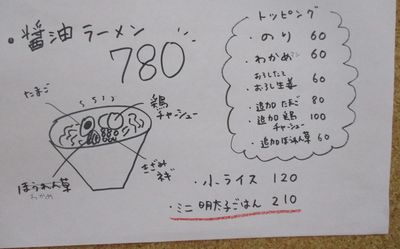 ・醤油ラーメン
780
たまご
鶏
チャーシュー
ほうれん草
わかめ
きざみ
ネギ
トッピング
・のり 60
・わかめ 60
・おろし生姜 60
・追加たまご 80
・追加鶏 100
チャーシュー
・追加ほうれん草 60
・小ライス 120
・ミニ明太子ごはん 210